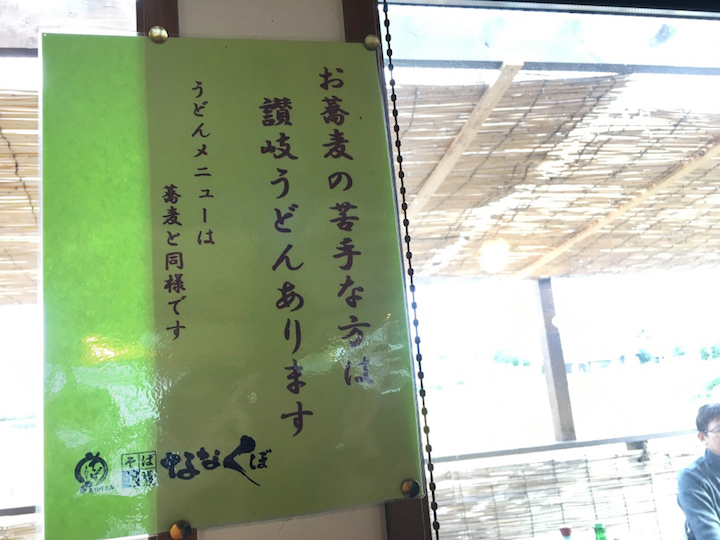 お蕎麦の苦手な方は
讃岐うどんあります
うどんメニューは
蕎麦と同様です
そば
なくぼ